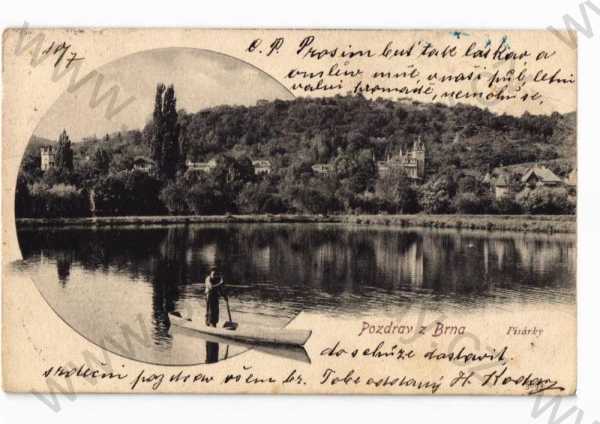 10/7
C. P. Prosim buť tak láskav, a
omluv mně, v naší půl letní
valní hromadě, nemohu se,
Pozdrav z Brna Pisárky
do schůze dostavit.
srdeční pozdrav všem br. Tobě oddaný H.